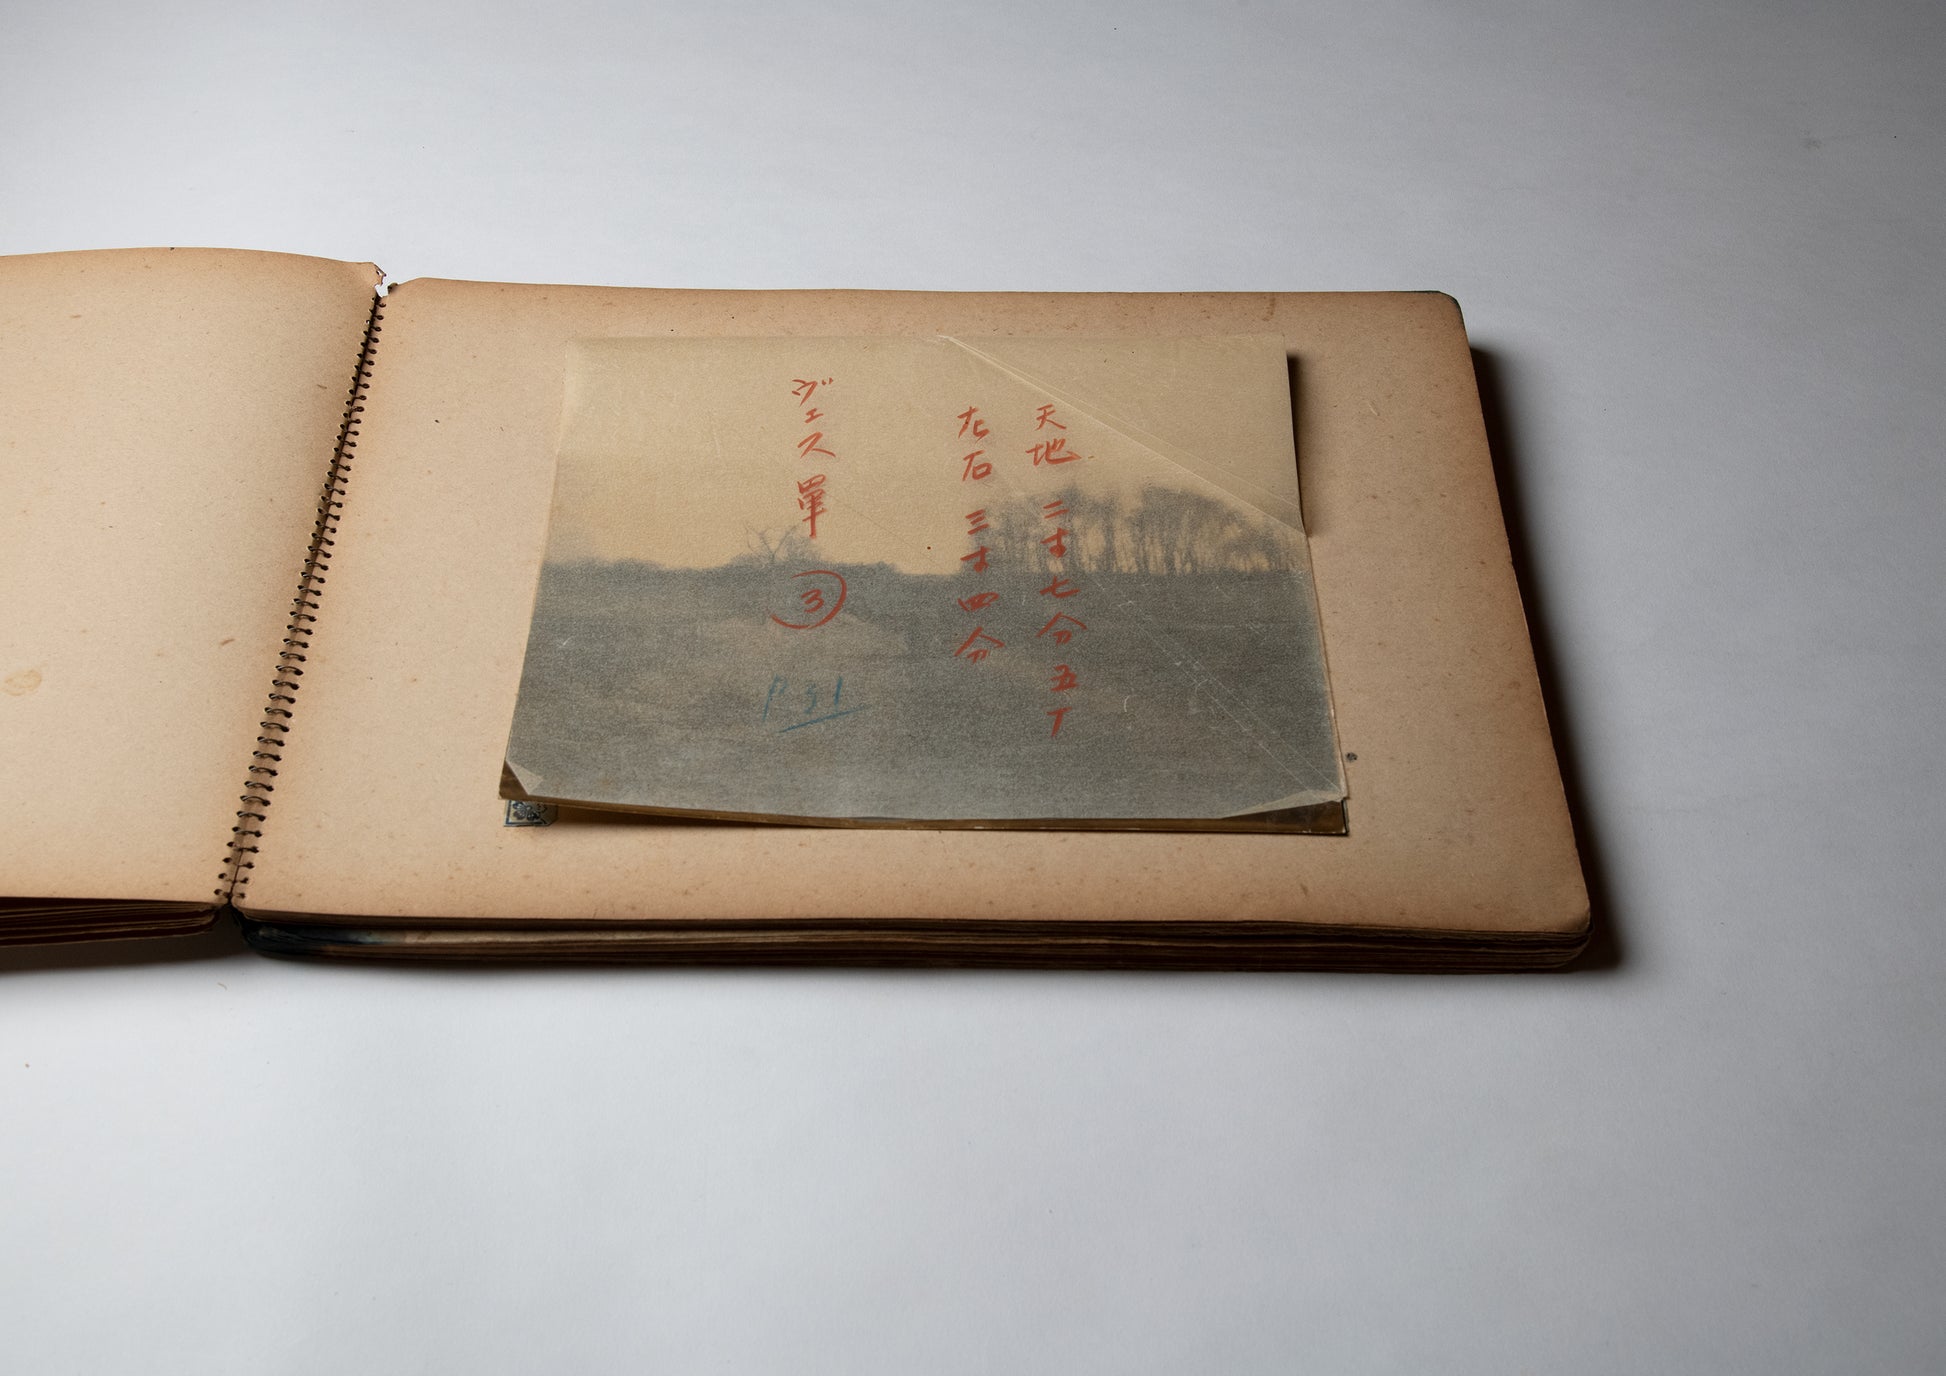 天地 二寸七分五丁
左右 三寸四分
ヴェス單 ③
P.31